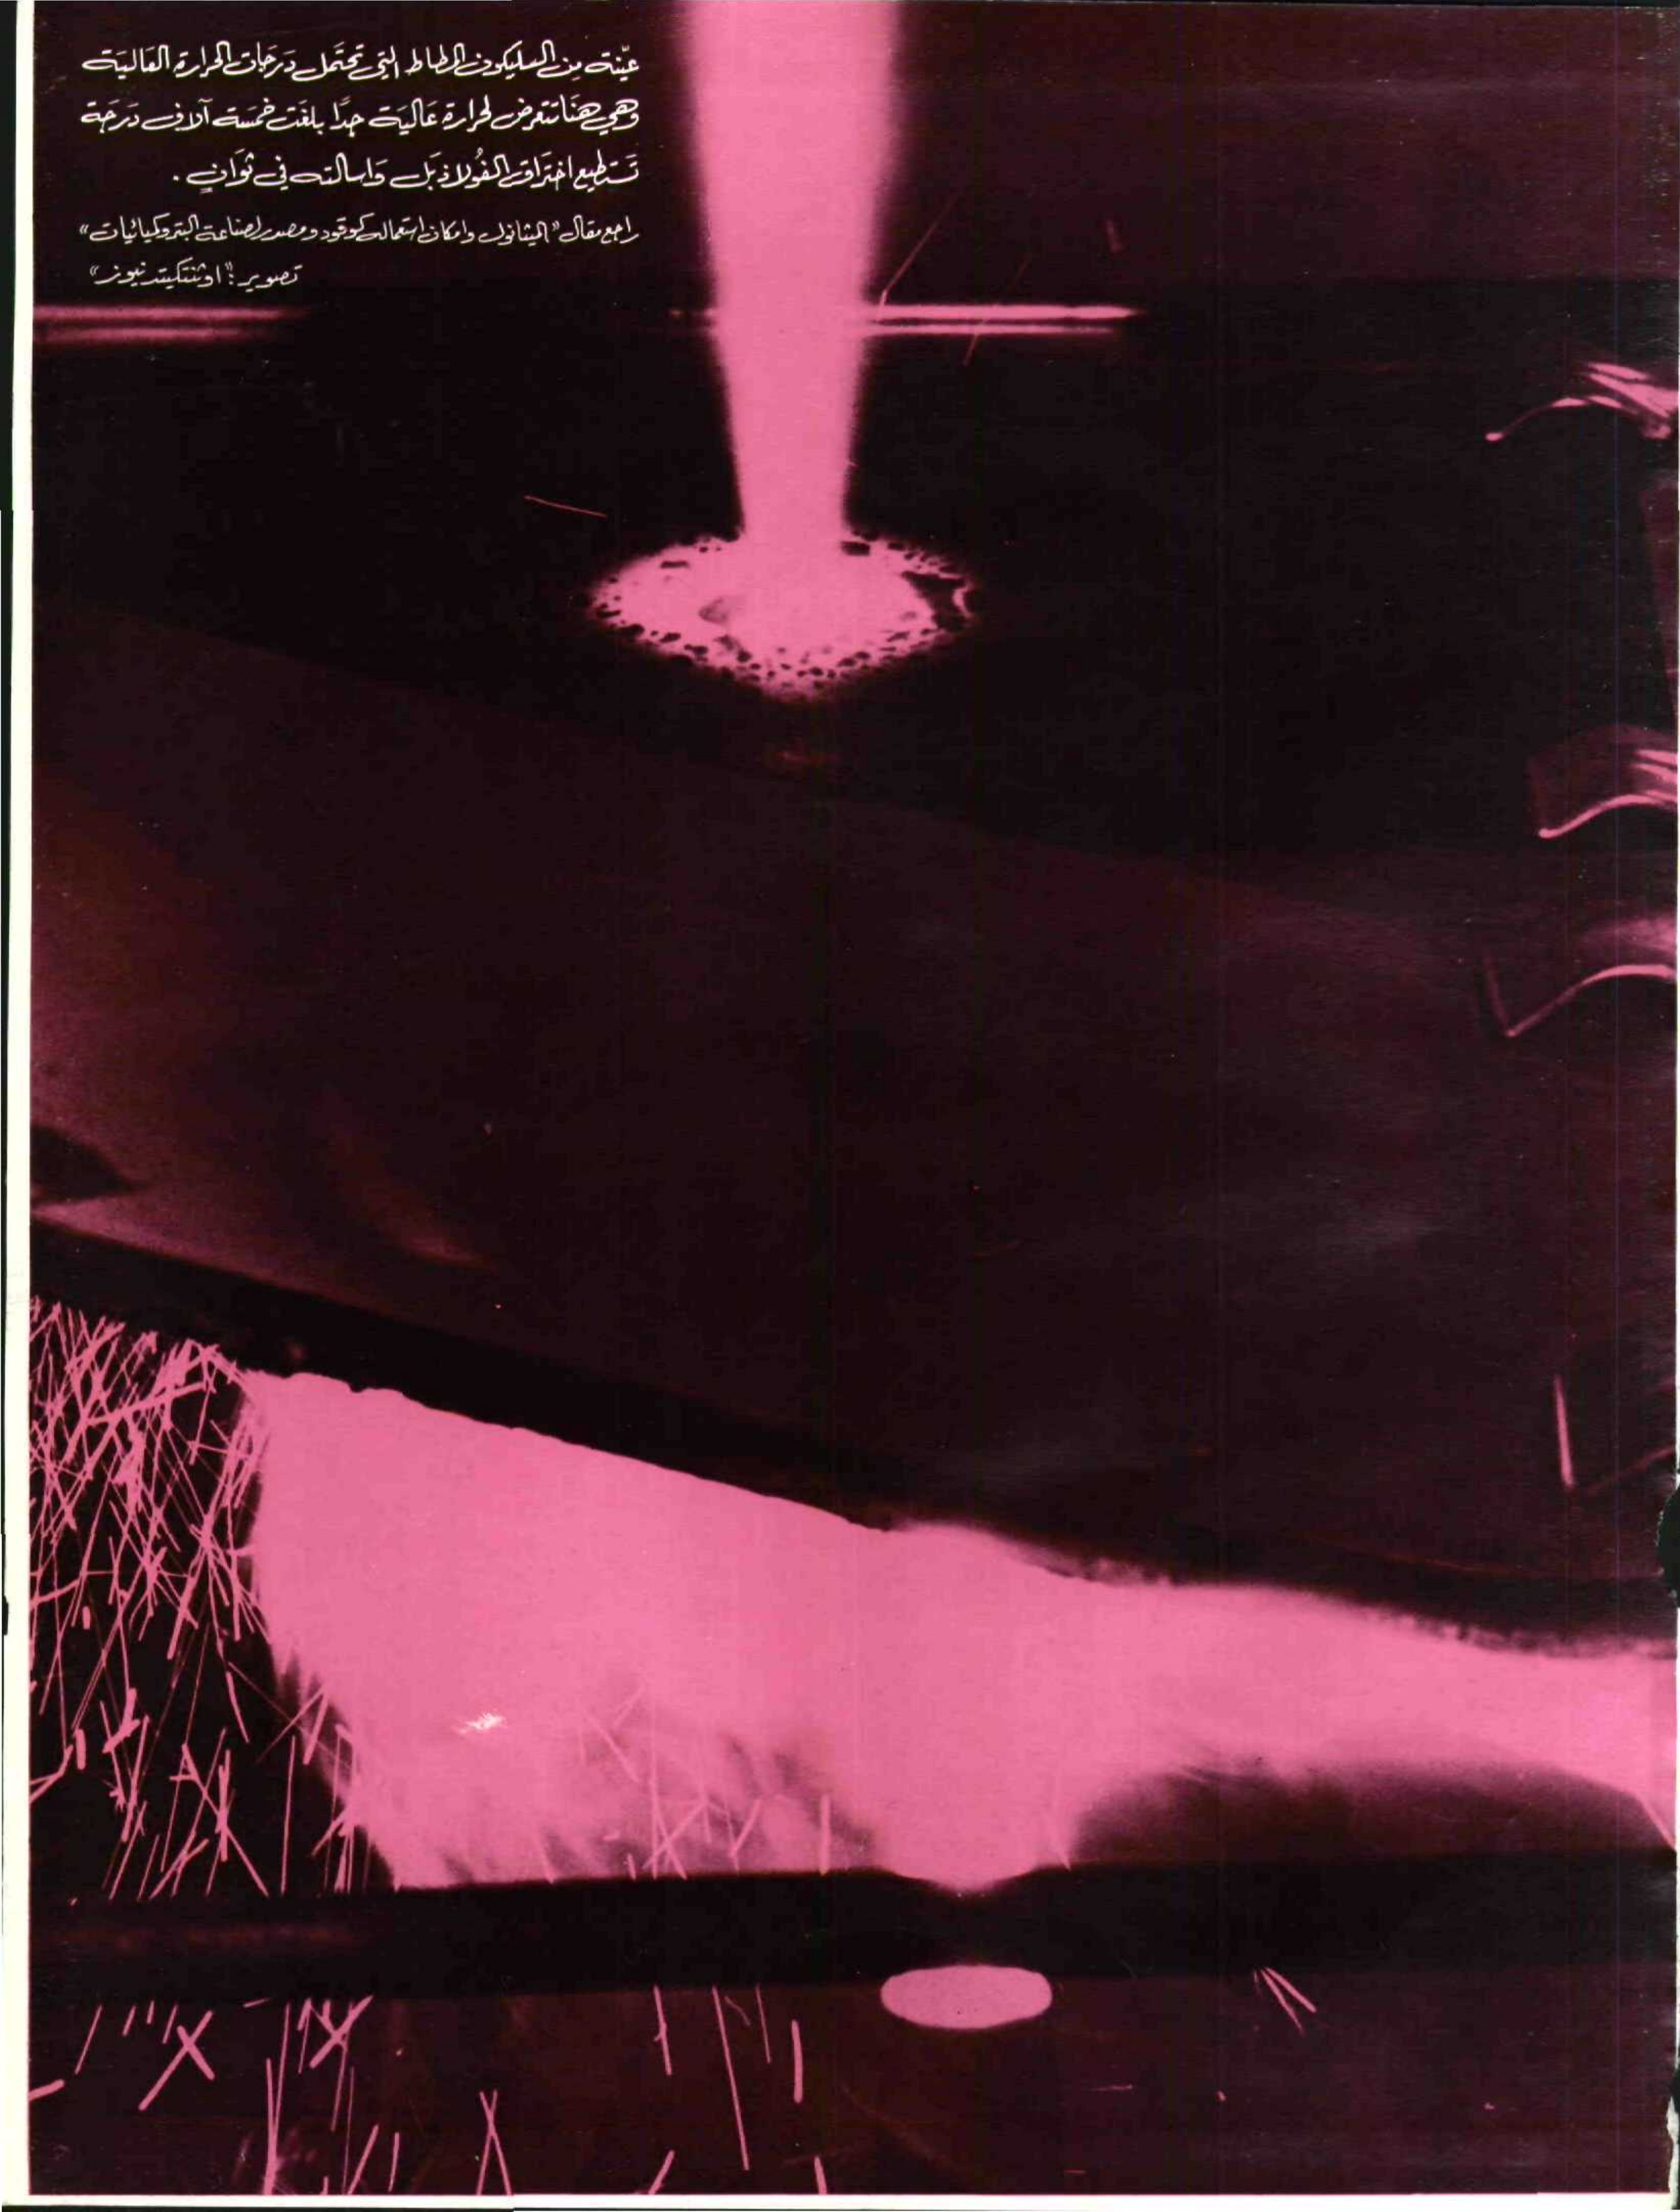 عيّنة من السليكون المطاط التي تحتمل درجات الحرارة العالية
وهي هنا تتعرض لحرارة عالية جدًا بلغت خمسة آلاف درجة
تستطيع اختراق الفولاذ بل واسالته في ثوانٍ .
راجع مقال "الميثانول وامكان استعماله كوقود ومصدر لصناعة البتروكيمائيات"
تصوير : "اوثنتكيتد نيوز"